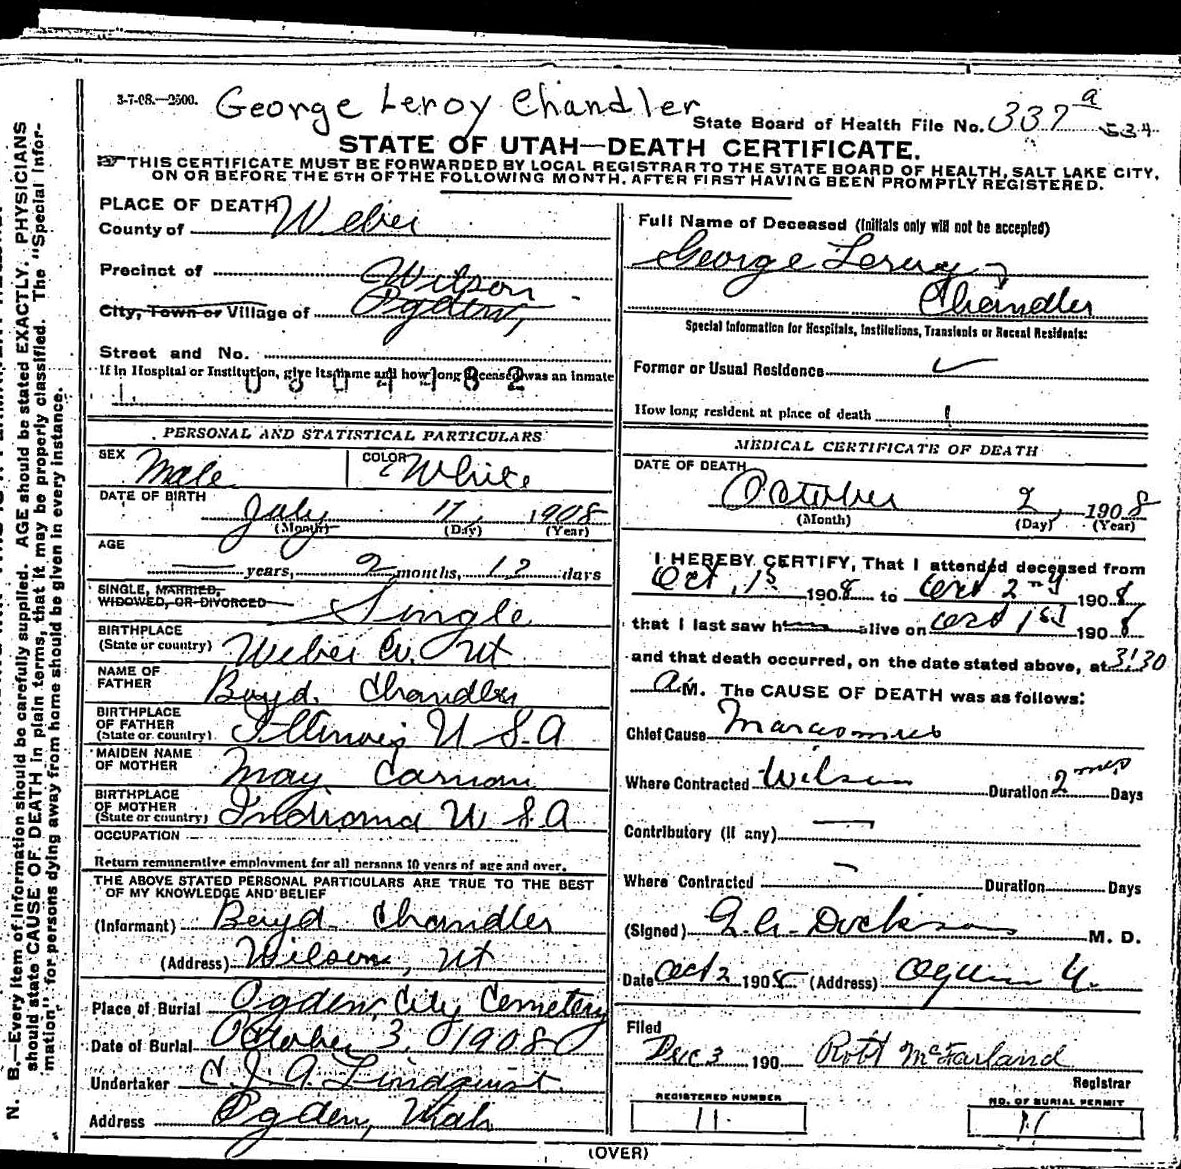 3-7-08.—2500. George Leroy Chandler
State Board of Health File No. 337 a 534
STATE OF UTAH—DEATH CERTIFICATE.
THIS CERTIFICATE MUST BE FORWARDED BY LOCAL REGISTRAR TO THE STATE BOARD OF HEALTH, SALT LAKE CITY,
ON OR BEFORE THE 5TH OF THE FOLLOWING MONTH, AFTER FIRST HAVING BEEN PROMPTLY REGISTERED.
PLACE OF DEATH
County of Weber
Precinct of Wilson
City, Town or Village of Ogden,
Street and No.
If in Hospital or Institution, give its name and how long deceased was an inmate
Full Name of Deceased (Initials only will not be accepted)
George Leroy
Chandler
Special Information for Hospitals, Institutions, Transients or Recent Residents:
Former or Usual Residence
How long resident at place of death
PERSONAL AND STATISTICAL PARTICULARS
SEX Male COLOR White
DATE OF BIRTH
July 17, 1908
(Month) (Day) (Year)
AGE
years, 2 months, 12 days
SINGLE, MARRIED,
WIDOWED, OR DIVORCED Single
BIRTHPLACE
(State or country) Weber Co. Ut
NAME OF
FATHER Boyd Chandler
BIRTHPLACE
OF FATHER
(State or country) Illinois U S.A
MAIDEN NAME
OF MOTHER May
BIRTHPLACE
OF MOTHER
(State or country) Indiana U S A
OCCUPATION
Return remunerative employment for all persons 10 years of age and over.
THE ABOVE STATED PERSONAL PARTICULARS ARE TRUE TO THE BEST
OF MY KNOWLEDGE AND BELIEF
(Informant) Boyd Chandler
(Address) Wilson, Ut
Place of Burial Ogden, City Cemetery
Date of Burial October 3, 1908
Undertaker C.J.A. Lindquist
Address Ogden, Utah
MEDICAL CERTIFICATE OF DEATH
DATE OF DEATH
October 2, 1908
(Month) (Day) (Year)
I HEREBY CERTIFY, That I attended deceased from
Oct. 1st 1908 to Oct 2nd 1908
that I last saw h alive on Oct 1st 1908
and that death occurred, on the date stated above, at 3:30
a M. The CAUSE OF DEATH was as follows:
Chief Cause
Where Contracted Wilson Duration 2 mos Days
Contributory (if any)
Where Contracted Duration Days
(Signed) M. D.
Date Oct 2 1908 (Address) Ogden U.
Filed
Dec 3 190 Robt McFarland
Registrar
REGISTERED NUMBER
11
NO. OF BURIAL PERMIT
11
(OVER)
N. B.—Every item of information should be carefully supplied. AGE should be stated EXACTLY. PHYSICIANS
should state CAUSE OF DEATH in plain terms, that it may be properly classified. The "Special Infor-
mation" for persons dying away from home should be given in every instance.